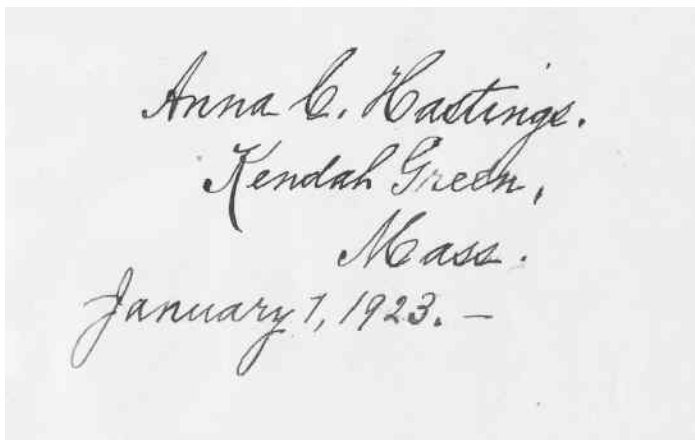 Anna C. Hastings.
Kendal Green,
Mass.
January 1, 1923. —